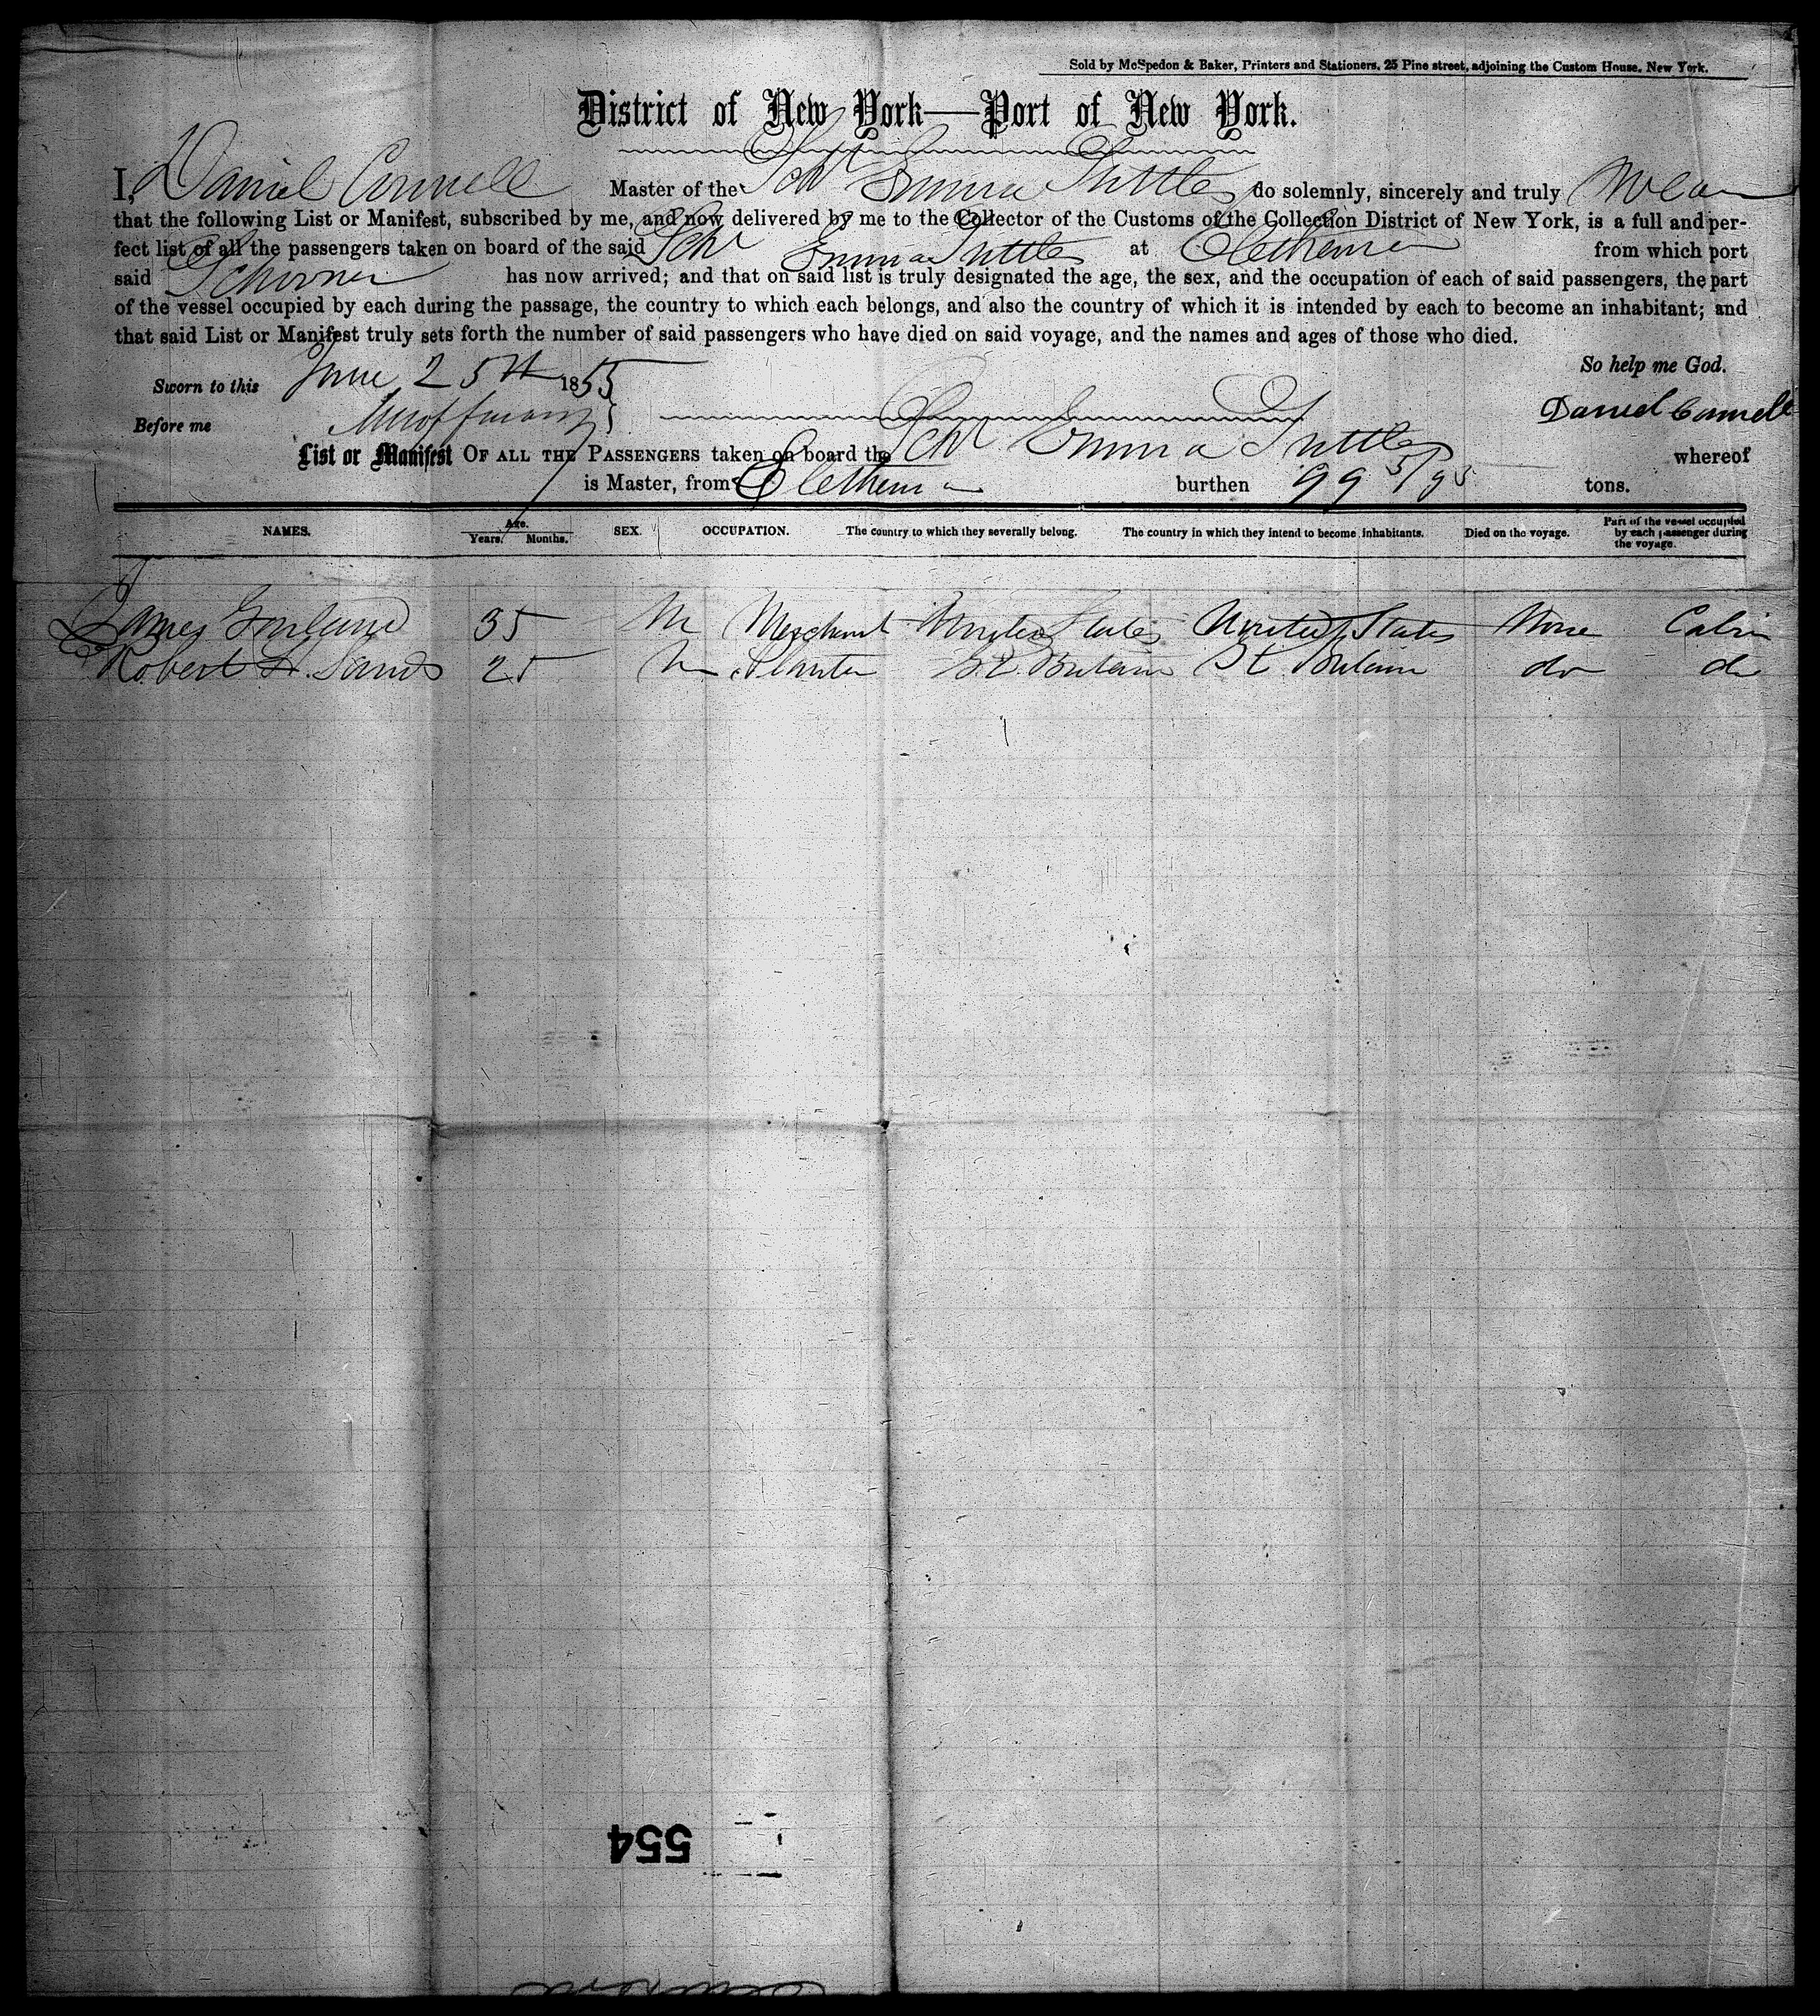 Sold by McSpedon & Baker, Printers and Stationers, 25 Pine street, adjoining the Custom House, New York.
District of New York—Port of New York.
I, Daniel Connell Master of the Schr Emma Tuttle do solemnly, sincerely and truly swear
that the following List or Manifest, subscribed by me, and now delivered by me to the Collector of the Customs of the Collection District of New York, is a full and per-
fect list of all the passengers taken on board of the said Schr Emma Tuttle at Eletheura from which port
said Schooner has now arrived; and that on said list is truly designated the age, the sex, and the occupation of each of said passengers, the part
of the vessel occupied by each during the passage, the country to which each belongs, and also the country of which it is intended by each to become an inhabitant; and
that said List or Manifest truly sets forth the number of said passengers who have died on said voyage, and the names and ages of those who died.
So help me God.
Sworn to this June 25th 1855
Daniel Connell
Before me
List or Manifest OF ALL THE PASSENGERS taken on board the Schr Emma Tuttle whereof
is Master, from Eletheura burthen 99 5/95 tons.
NAMES. Age. Years. Months. SEX. OCCUPATION. The country to which they severally belong. The country in which they intend to become inhabitants. Died on the voyage. Part of the vessel occupied by each passenger during the voyage.
James 35 M Merchant United States United States None Cabin
Robert H. Sands 25 M Planter Gt. Britain Gt Britain do do
554